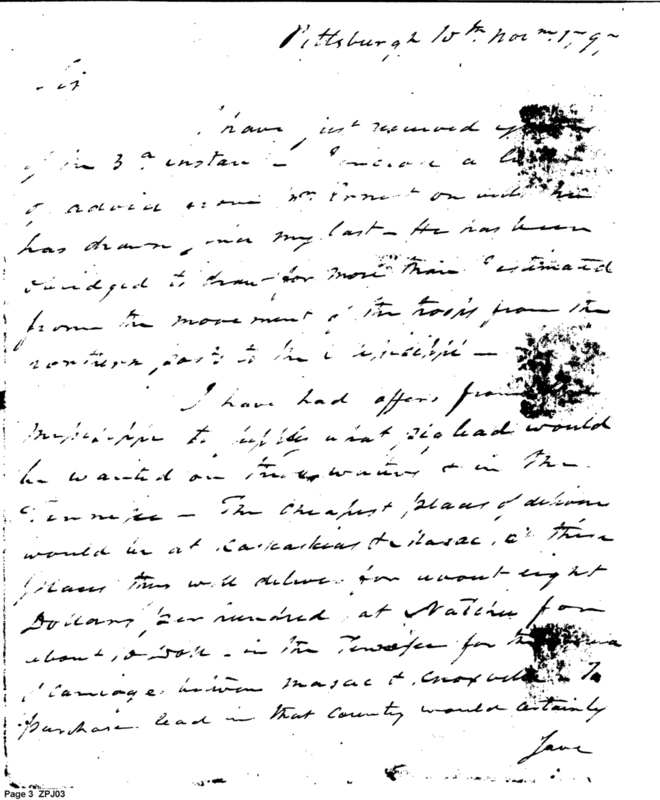 Pittsburgh 10th Novm. 179
Sir
I have just received
of the 3d instant - I enclose a
of advice from Mr. Ernest on
has drawn since my last - He has been
obridged to draw for more than I estimated
from the movement of the troops from the
northern posts to the Mississippi -
I have had offers from
Mississippi to supply what pig lead would
be wanted on those waters & in the
Tennessee - The cheapest places of deliver
would be at Kaskaskias & Masac, at these
places they will deliver for about eight
Dollars per hundred, at Natchez for
about 10 Doll - in the Tenessee for the
of carriage between Masac & Knoxville - To
purchase lead in that Country would certainly
Save
Page 3 ZPJ03